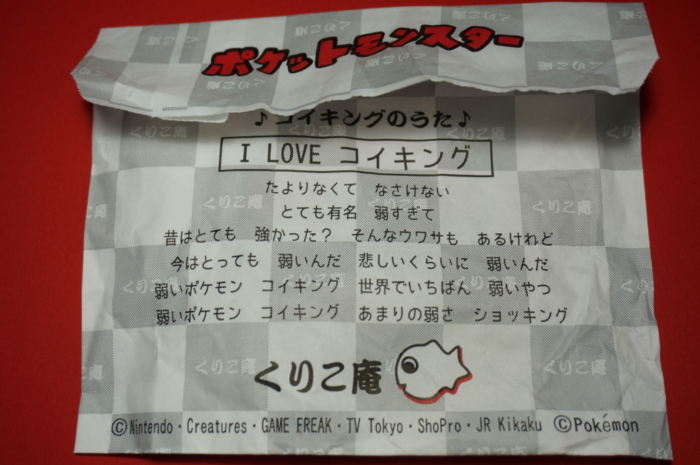 ポケットモンスター
♪コイキングのうた♪
I LOVE コイキング
たよりなくて なさけない
とても有名 弱すぎて
昔はとても 強かった? そんなウワサも あるけれど
今はとっても 弱いんだ 悲しいくらいに 弱いんだ
弱いポケモン コイキング 世界でいちばん 弱いやつ
弱いポケモン コイキング あまりの弱さ ショッキング
くりこ庵
©Nintendo・Creatures・GAME FREAK・TV Tokyo・ShoPro・JR Kikaku ©Pokémon